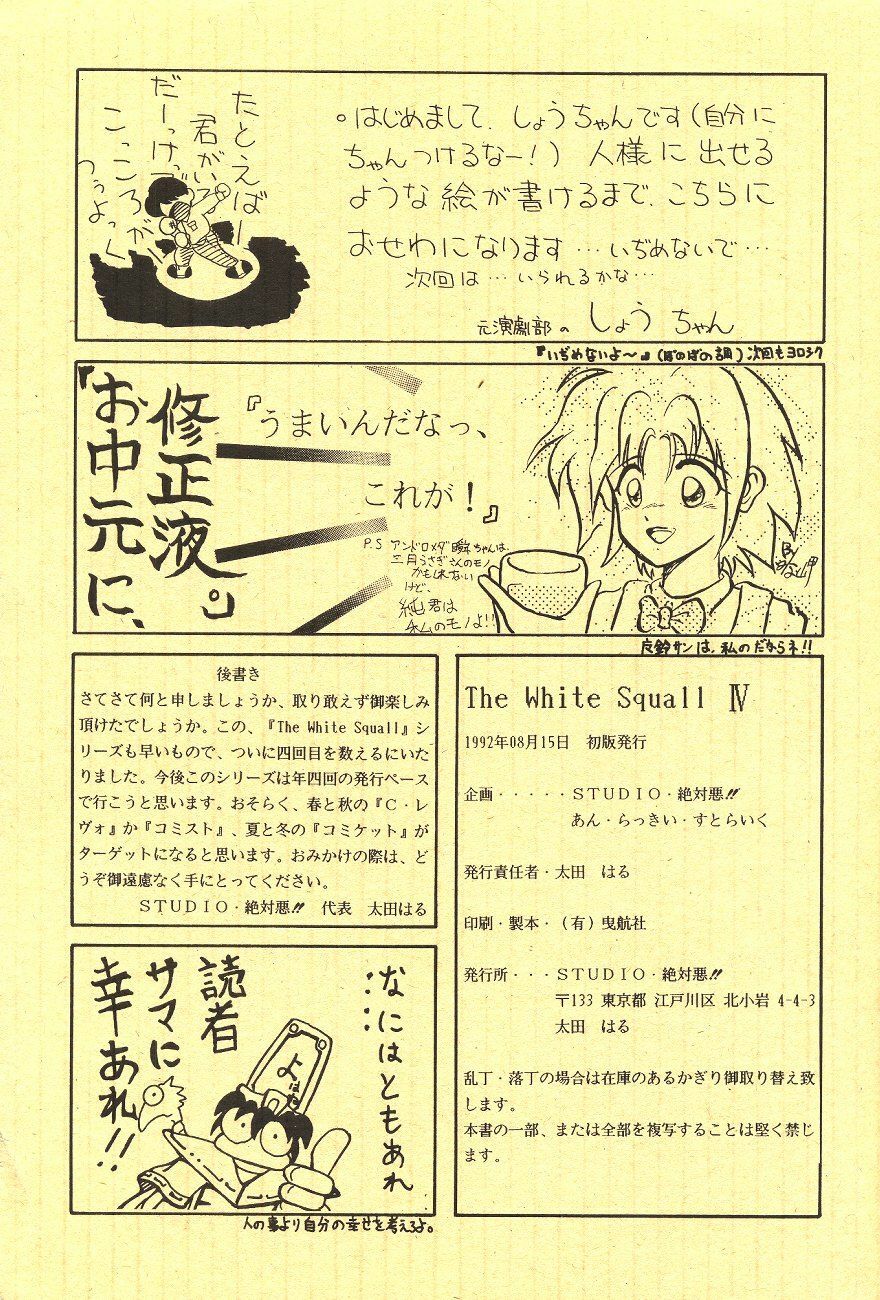 たとえばー
君がいる
だーけで
こっころが
つぅよっく
。はじめまして、しょうちゃんです(自分に
ちゃんつけるなー!) 人様に出せる
ような絵が書けるまで、こちらに
おせわになります…いぢめないで…
次回は…いられるかな…
元演劇部の しょうちゃん
『いぢめないよ〜』(ぼのぼの調)次回もヨロシク
『お中元に、
修正液。』
『うまいんだなっ、
これが!』
P.S アンドロメダ瞬ちゃんは、
三月うさぎさんのモノ
かもしれない
けど、
純君は
私のモノよ!!
By
私のだからネ!!
後書き
さてさて何と申しましょうか、取り敢えず御楽しみ
頂けたでしょうか。この、『The White Squall』シ
リーズも早いもので、ついに四回目を数えるにいた
りました。今後このシリーズは年四回の発行ペース
で行こうと思います。おそらく、春と秋の『C・レ
ヴォ』か『コミスト』、夏と冬の『コミケット』が
ターゲットになると思います。おみかけの際は、ど
うぞ御遠慮なく手にとってください。
STUDIO・絶対悪!! 代表 太田はる
The White Squall Ⅳ
1992年08月15日 初版発行
企画・・・・・STUDIO・絶対悪!!
あん・らっきい・すとらいく
発行責任者・太田 はる
印刷・製本・(有)曳航社
発行所・・・STUDIO・絶対悪!!
〒133 東京都 江戸川区 北小岩 4-4-3
太田 はる
乱丁・落丁の場合は在庫のあるかぎり御取り替え致
します。
本書の一部、または全部を複写することは堅く禁じ
ます。
なにはともあれ
……
読者
サマに
幸あれ!!
人の事より自分の幸せを考えろよ。